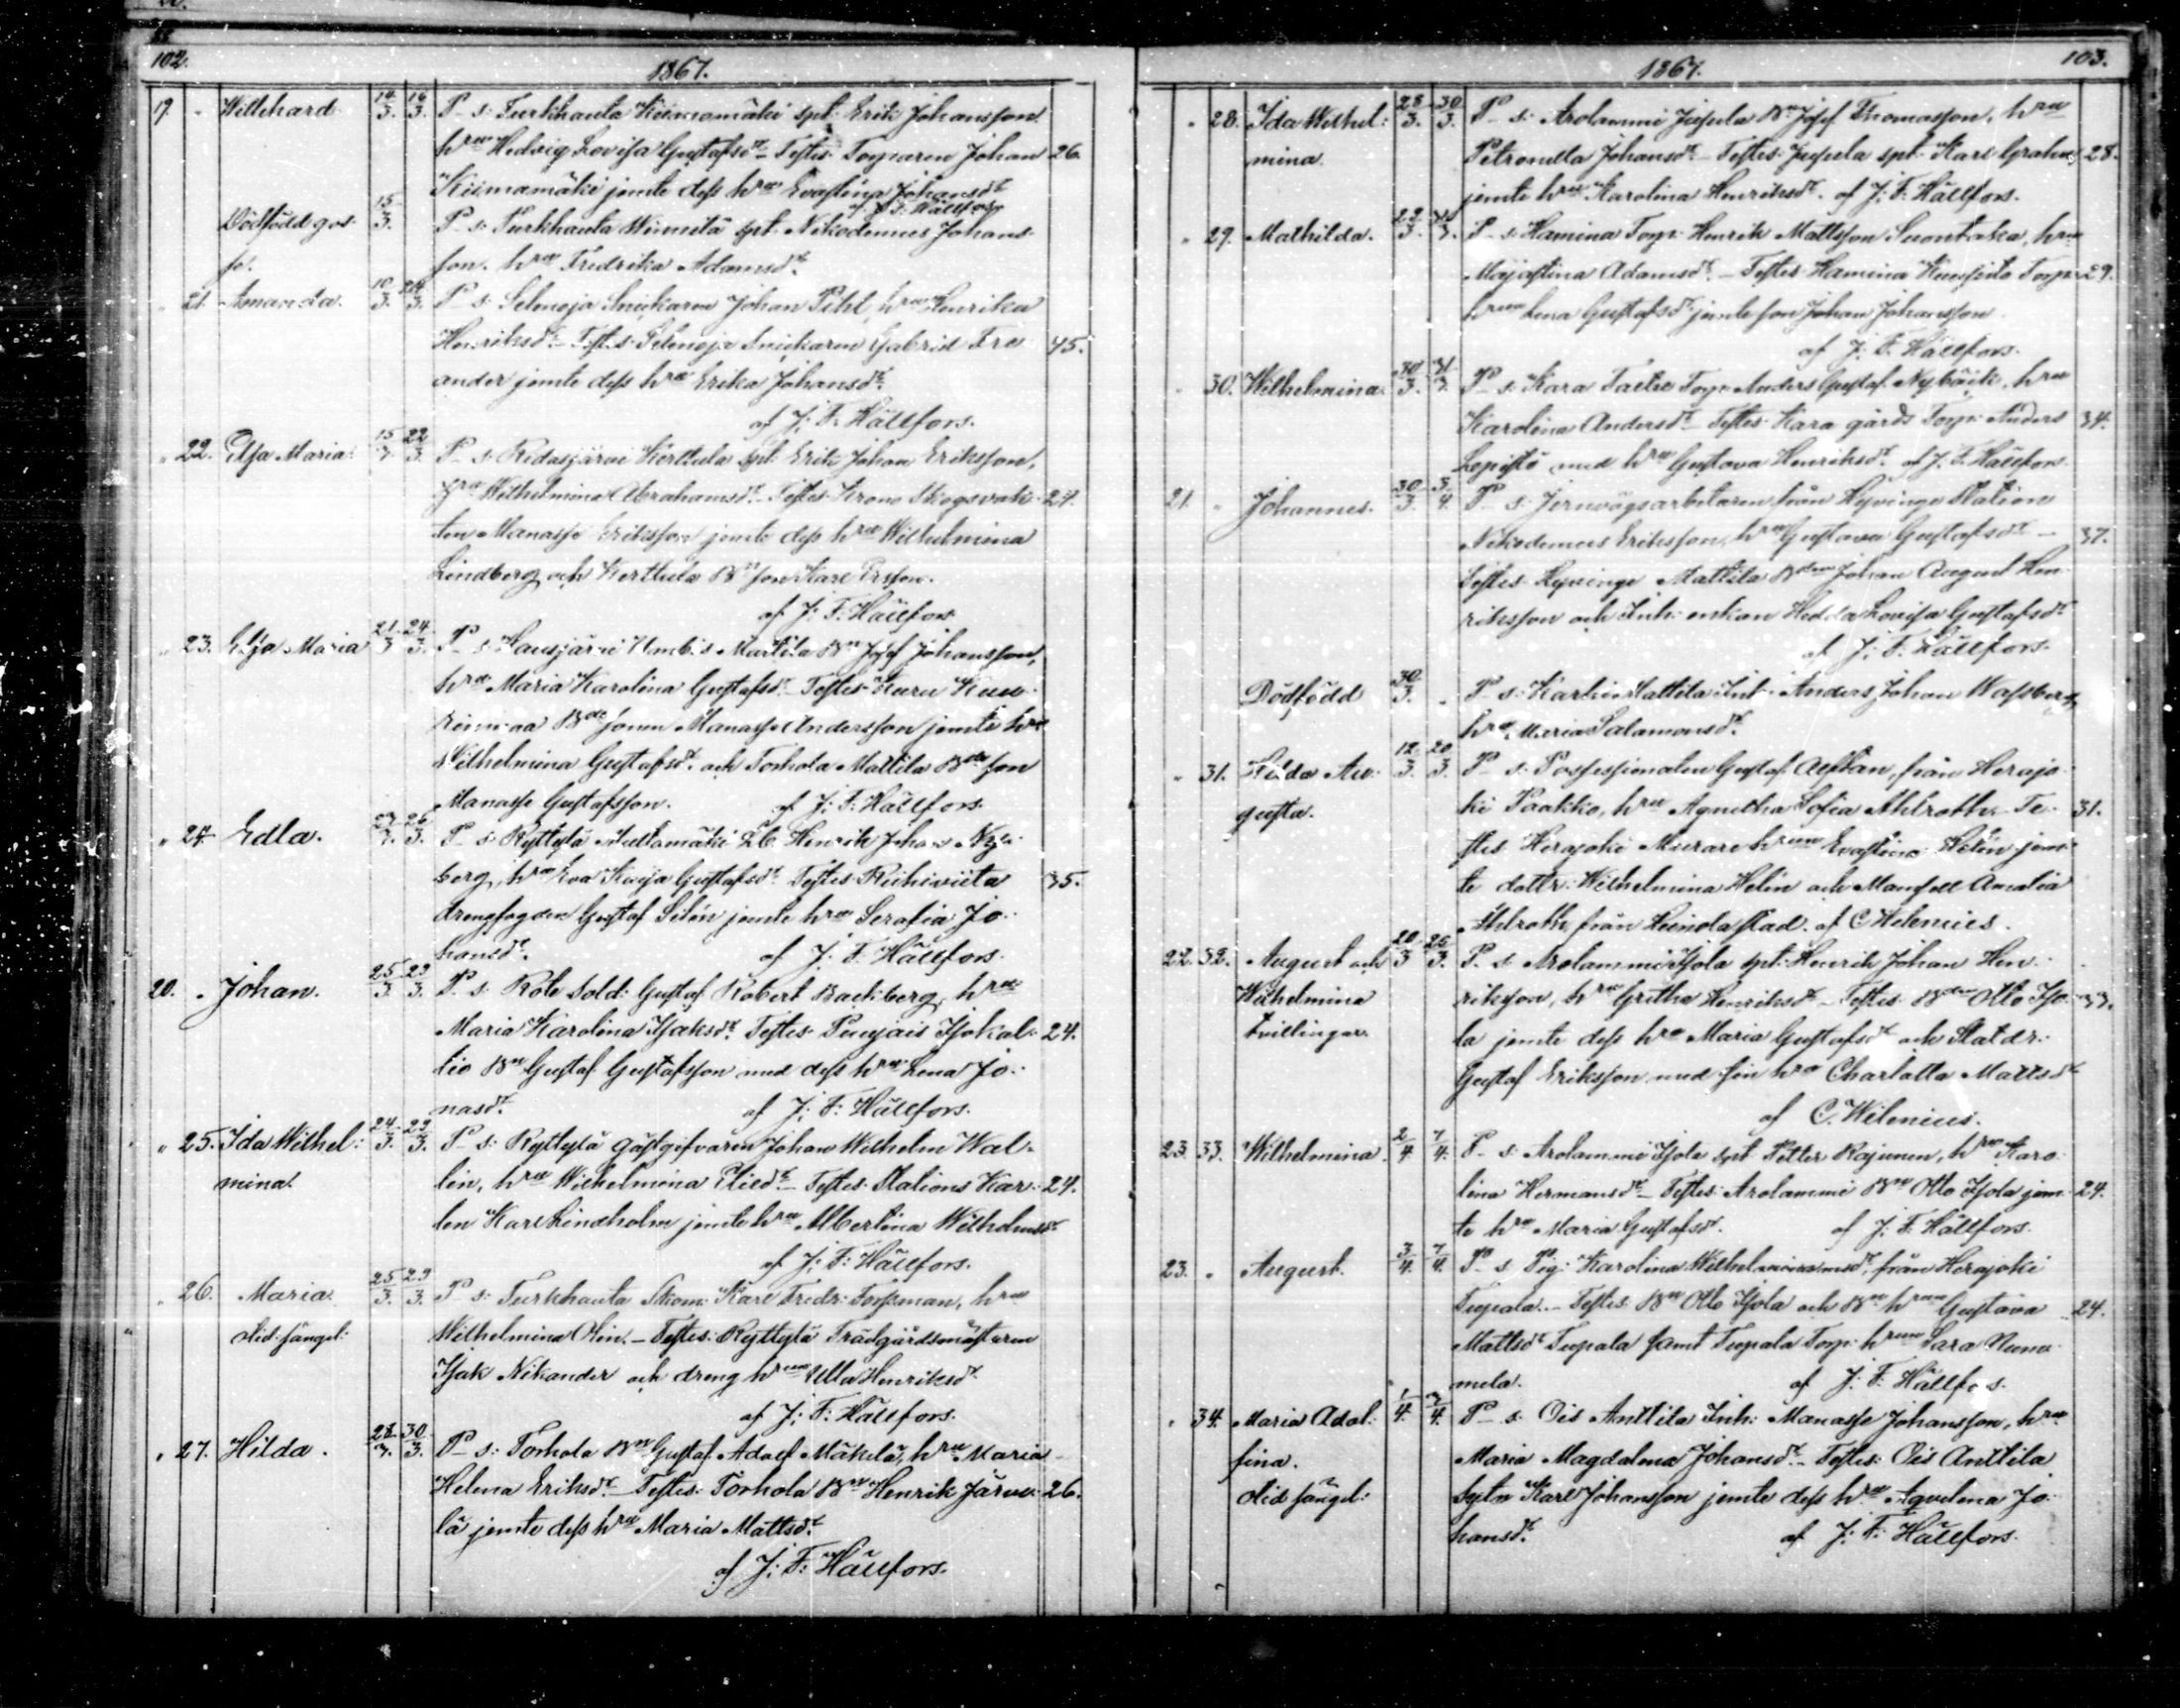 102.
1867.
19. " Willehard 14/3. 16/3. P. s: Turkhauta Kiimamäki spt. Erik Johansson
hru Hedvig Lovisa Gustafsdr. Testes: Torparen Johan 26.
Kiimamäki jemte dess hru Evastina Johansdr
af J: F: Hällfors
Dödfödd gos- 15/3. P. s: Turkhauta spt. Nikodemus Johans-
se. son. hru Fredrika Adamsdr.
" 21. Amanda. 10/3. 24/3. P. s: Selenoja Snickaren Johan Pihl, hru Henrika
Henriksdr. Test. s: Selenoja Snickaren Gabriel Fre- 45.
ander jemte dess hru Erika Johansdr.
af J: F: Hällfors.
" 22. Elsa Maria. 15/3 22/3. P. s: Ridasjärvi Kerttula spt. Erik Johan Eriksson,
hru Wilhelmina Abrahamsdr. Testes: Krono Skogsvak- 24.
ten Manasse Eriksson jemte dess hru Wilhelmina
Lindberg och Kerttula Bd. son Karl Ersson.
af J: F: Hällfors
" 23. Elsa Maria 21/3 24/3. P. s: Hausjärvi Umb. s Marttila Bn Josef Johansson,
hru Maria Karolina Gustafsdr. Testes: Kuru
Bde sonen Manasse Andersson jemte hru
Wilhelmina Gustafsdr. och Torhola Mattila Bde son
Manasse Gustafsson. af J: F: Hällfors.
" 24. Edla. 23/3. 26/3. P. s: Ryttylä Multamäki Henrik Johan Ny-
berg, hru Eva Kaija Gustafsdr. Testes: Riihiviita 35.
drengfogden Gustaf Silén jemte hru Serafia Jo-
hansdr. af J: F: Hällfors.
20. " Johan. 25/3. 29/3. P. s: Rote Sold: Gustaf Robert Backberg, hru
Maria Karolina Isaksdr. Testes: Punjais Isokal- 24.
lio Bn Gustaf Gustafsson med dess hru Lena Jo-
nasdr. af J: F: Hällfors.
" 25. Ida Wilhel- 24/3. 29/3. P. s: Ryttylä Gästgifvaren Johan Wilhelm Wal-
mina. lin, hru Wilhelmina Eliedr. Testes: Stations Kar- 24.
len Karl Lindholm jemte hru Albertina Wilhelmsdr.
af J: F: Hällfors.
" 26. Maria 25/3. 29/3. P. s: Turkhauta Skom: Karl Fredr: Forsman, hru
Wilhelmina Olin. Testes: Ryttylä Trädgårdsmästaren
Isak Nikander och dreng hrun Ulla Henriksdr.
af J: F: Hällfors.
" 27. Hilda. 28/3. 30/3. P. s: Torhola Bn Gustaf Adolf Mäkelä, hru Maria
Helena Eriksdr. Testes: Torhola Bn Henrik Järve- 26.
lä jemte dess hru Maria Mattsdr.
af J: F: Hällfors.
1867.
103.
" 28. Ida Wilhel- 28/3. 30/3. P. s: Arolammi Jupula Bn Josef Thomasson, hru
mina. Petronella Johansdr. Testes: Jupula spt. Karl Grahn 28.
jemte hru Karolina Henriksdr. af J: F: Hällfors.
" 29. Mathilda. 29/3. 31/3. P. s: Hamina Torp: Henrik Mattsson Suontaka, hru
Majastina Adamsdr. Testes: Hamina Torp: 29.
hrun Lena Gustafsdr jemte son Johan Johansson
af J: F: Hällfors.
" 30. Wilhelmina. 30/3. 31/3. P. s: Kara Torp: Anders Gustaf Nybäck, hru
Karolina Andersdr. Testes: Kara gårds Torp: Anders 34.
Lepistö med hru Gustava Henriksdr. af J: F: Hällfors
21. " Johannes. 30/3. 3/4. P. s: Jernvägsarbetaren från Hyvinge Station
Nikodemus Eriksson, hru Gustava Gustafsdr 37.
Testes: Hyvinge Mattila Bden Johan August Hen-
riksson och Inh: enkan Hedda Lovisa Gustafsdr
af J: F: Hällfors.
Dödfödd 30/3. " P. s: Karhi Mattila Inh: Anders Johan Wassberg,
hru Maria Salamonsdr.
" 31. Hilda Au- 12/3. 20/3. P. s: Possessionaten Gustaf från Herajo-
gusta. ki Paakko, hru Agnetha Sofia Ahlroth. Te- 31.
stes: Herajoki Murare hrun Evastina Helin jem-
te dottr: Wilhelmina Helin och Mamsell Amalia
Ahlroth från Heinola stad. af C. Wilenius.
22. 32. August och 20/3 25/3. P. s: Arolammi Isola spt: Henrik Johan Hen-
Wilhelmina riksson, hru Gretha Henriksdr. Testes: Bden Otto Iso- 33.
tvillingar. la jemte dess hru Maria Gustafsdr och Statdr:
Gustaf Eriksson med sin hru Charlotta Mattsdr
af C. Wilenius.
23. 33. Wilhelmina. 2/4. 7/4. P. s: Arolammi Isola spt. Petter Rajunen, hru Karo-
lina Hermansdr. Testes: Arolammi Bn Otto Isola jem- 24.
te hru Maria Gustafsdr. af J: F: Hällfors.
23. " August. 3/4. 7/4. P. s: Pig: Karolina från Herajoki
Tupala. Testes: Bn Otto Isola och Bn hrun Gustava 24.
Mattsdr Tupala samt Tupala Torp: hrun Sara Numm-
mela. af J: F: Hällfors.
" 34. Maria Adol- 1/4. 7/4. P. s: Ois Anttila Inh: Manasse Johansson, hru
fina. Maria Magdalena Johansdr. Testes: Ois Anttila
Sytn Karl Johansson jemte dess hru Aqvelina Jo-
hansdr. af J: F: Hällfors.